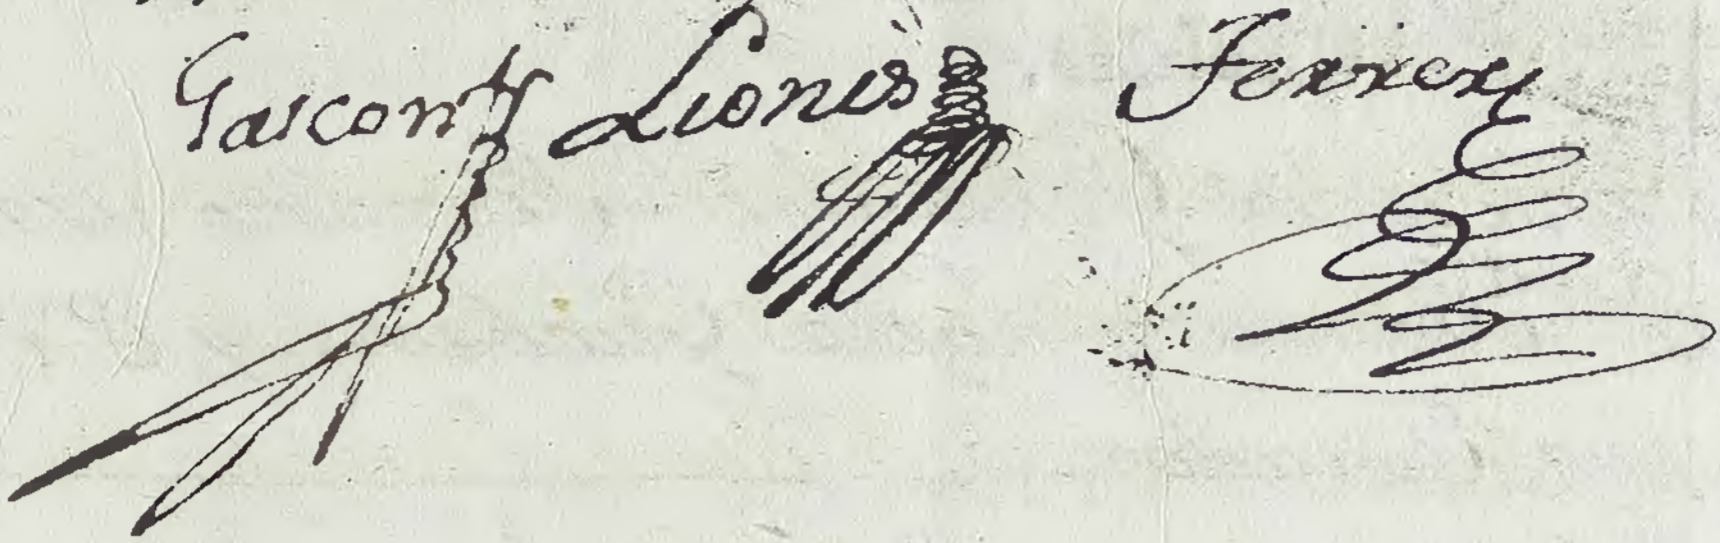 Gascon Lionis Ferrery